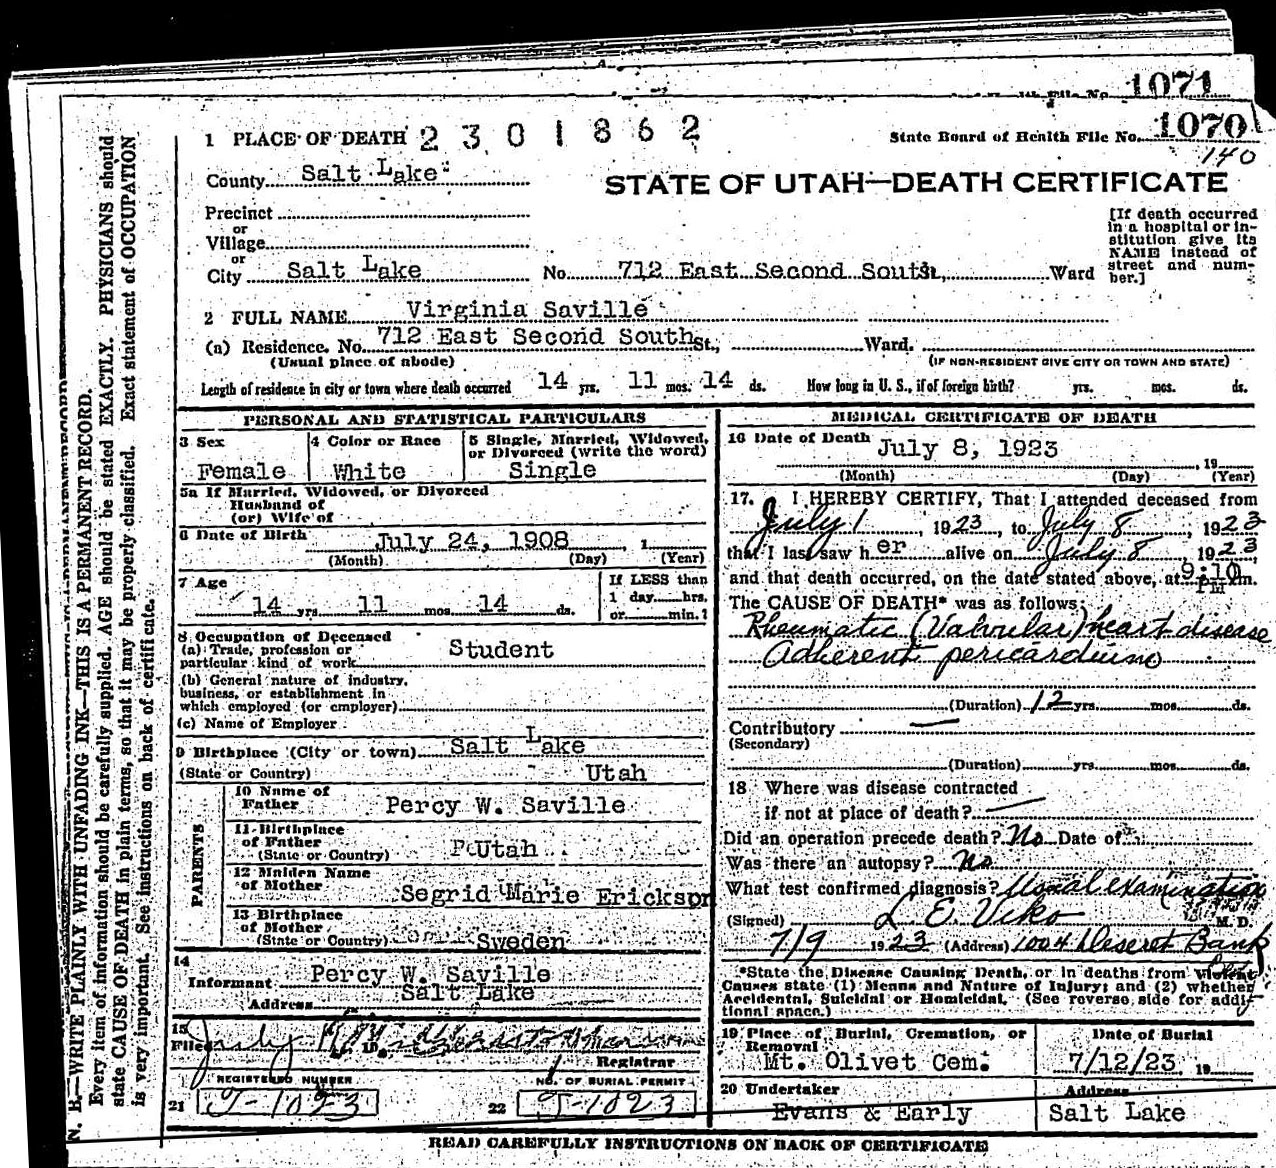 1071
1 PLACE OF DEATH 2301862
State Board of Health File No. 1070
140
County Salt Lake
STATE OF UTAH—DEATH CERTIFICATE
Precinct
or
Village
or
City Salt Lake No. 712 East Second South St., Ward
[If death occurred
in a hospital or in-
stitution give its
NAME instead of
street and num-
ber.]
2 FULL NAME Virginia Saville
(a) Residence. No. 712 East Second South St., Ward.
(Usual place of abode) (IF NON-RESIDENT GIVE CITY OR TOWN AND STATE)
Length of residence in city or town where death occurred 14 yrs. 11 mos. 14 ds. How long in U. S., if of foreign birth? yrs. mos. ds.
PERSONAL AND STATISTICAL PARTICULARS
3 Sex
Female
4 Color or Race
White
5 Single, Married, Widowed,
or Divorced (write the word)
Single
5a If Married, Widowed, or Divorced
Husband of
(or) Wife of
6 Date of Birth July 24, 1908, 1
(Month) (Day) (Year)
7 Age
14 yrs. 11 mos. 14 ds.
If LESS than
1 day hrs.
or min.?
8 Occupation of Deceased
(a) Trade, profession or
particular kind of work Student
(b) General nature of industry,
business, or establishment in
which employed (or employer)
(c) Name of Employer
9 Birthplace (City or town) Salt Lake
(State or Country) Utah
PARENTS
10 Name of
Father Percy W. Saville
11 Birthplace
of Father
(State or Country) Utah
12 Maiden Name
of Mother Segrid Marie Erickson
13 Birthplace
of Mother
(State or Country) Sweden
14
Informant Percy W. Saville
Address Salt Lake
15
Filed July
Registrar
REGISTERED NUMBER
21 J-1023
NO. OF BURIAL PERMIT
22 J-1023
MEDICAL CERTIFICATE OF DEATH
16 Date of Death July 8, 1923
, 19
(Month) (Day) (Year)
17. I HEREBY CERTIFY, That I attended deceased from
July 1 1923 to July 8, 1923
that I last saw her alive on July 8, 1923
and that death occurred, on the date stated above, at 9:10 PM m.
The CAUSE OF DEATH* was as follows:
Rheumatic (Valvular) heart disease
Adherent pericardium
(Duration) 12 yrs. mos. ds.
Contributory —
(Secondary)
(Duration) yrs. mos. ds.
18 Where was disease contracted
if not at place of death? —
Did an operation precede death? No Date of
Was there an autopsy? No
What test confirmed diagnosis? Usual examination
(Signed) L. E. Viko M. D.
7/9 1923 (Address) 1004 Deseret Bank
*State the Disease Causing Death, or in deaths from Violent
Causes state (1) Means and Nature of Injury; and (2) whether
Accidental, Suicidal or Homicidal. (See reverse side for addi-
tional space.)
19 Place of Burial, Cremation, or
Removal
Mt. Olivet Cem.
Date of Burial
7/12/23 19
20 Undertaker
Evans & Early
Address
Salt Lake
READ CAREFULLY INSTRUCTIONS ON BACK OF CERTIFICATE
N. B.—WRITE PLAINLY WITH UNFADING INK—THIS IS A PERMANENT RECORD.
Every item of information should be carefully supplied. AGE should be stated EXACTLY. PHYSICIANS should
state CAUSE OF DEATH in plain terms, so that it may be properly classified. Exact statement of OCCUPATION
is very important. See instructions on back of certificate.